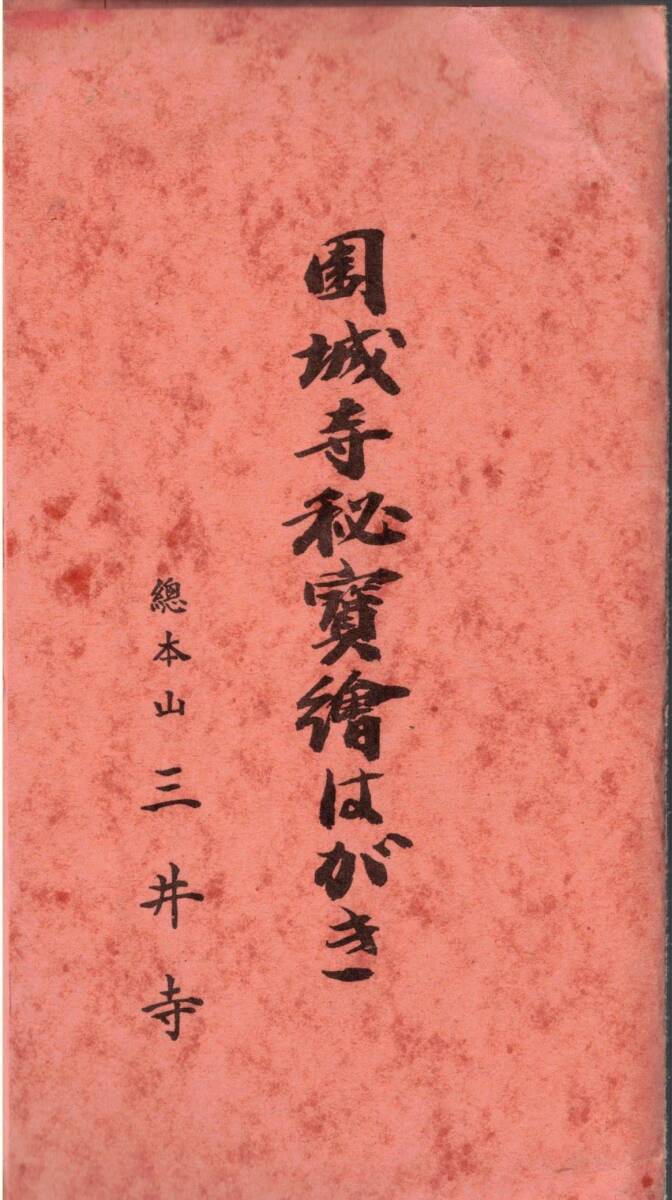 園城寺秘寳繪はがき
總本山 三井寺